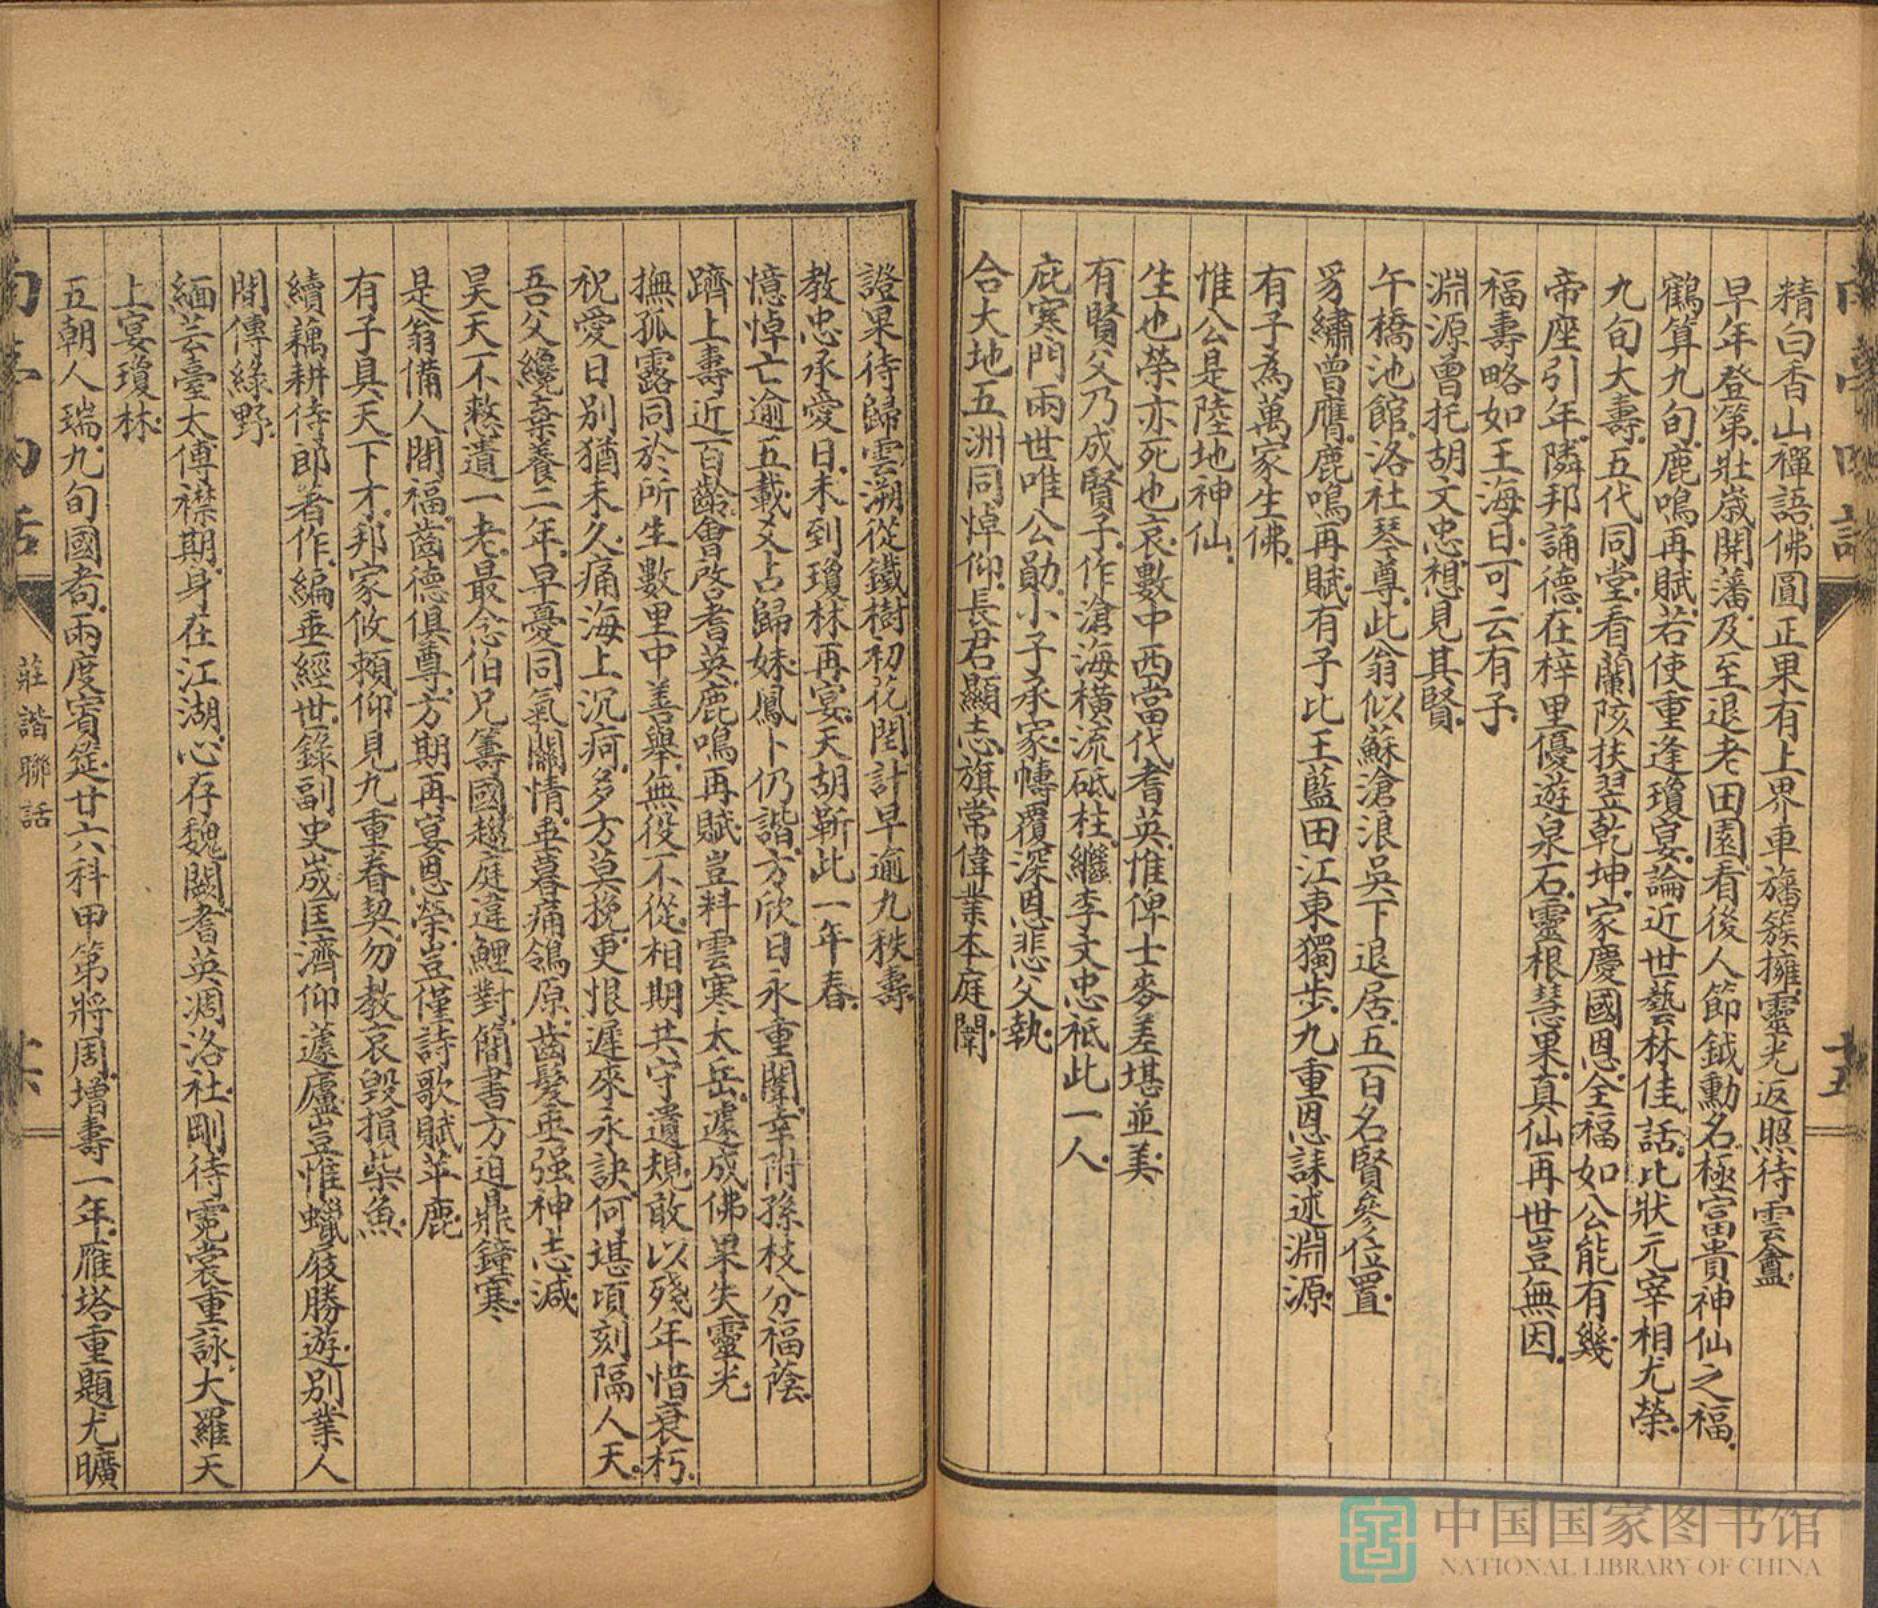 精白香山禪語佛圓正果有上界車旛簇擁靈光返照待雲龕
早年登第壯歲開藩及至退老田園看後人節鉞勳名極富貴神仙之福
鶴算九旬鹿鳴再賦若使重逢瓊宴論近世藝林佳話比狀元宰相尤榮
九旬大壽五代同堂看蘭陔扶翌乾坤家慶國恩全福如公能有幾
帝座引年隣邦誦德在梓里優遊泉石靈根慧果真仙再世豈無因
福壽略如王海日可云有子
淵源曾托胡文忠想見其賢
午橋池館洛社琴尊此翁似蘇滄浪吳下退居五百名賢參位置
豸繡曾膺鹿鳴再賦有子比王藍田江東獨步九重恩誄述淵源
有子為萬家生佛
惟公是陸地神仙
生也榮亦死也哀數中西當代耆英惟俾士麥差堪並美
有賢父乃成賢子作滄海橫流砥柱繼李文忠祇此一人
庇寒門兩世唯公勛小子承家幬覆深恩悲父執
合大地五洲同悼仰長君顯志旗常偉業本庭闈
十五
證果待歸雲溯從鐵樹初花閏計早逾九秩壽
教忠承愛日未到瓊林再宴天胡靳此一年春
憶悼亡逾五載爻占歸妹鳳卜仍諧方欣日永重闈幸附孫枝分福蔭
躋上壽近百齡會啓耆英鹿鳴再賦豈料雲寒太岳遽成佛果失靈光
撫孤露同於所生數里中善舉無役不從相期共守遺規敢以殘年惜衰朽
祝愛日別猶未久痛海上沉疴多方莫挽更恨遲來永訣何堪頃刻隔人天
吾父纔棄養二年早憂同氣關情垂暮痛鴒原齒髮垂强神志減
昊天不憗遺一老最念伯兄籌國趨庭違鯉對簡書方迫鼎鐘寒
是翁備人間福齒德俱尊方期再宴恩榮豈僅詩歌賦苹鹿
有子具天下才邦家攸賴仰見九重眷契勿教哀毀損柴魚
續藕耕侍郎著作編垂經世錄副史宬匡濟仰蘧廬豈惟蠟屐勝遊別業人
間傳綠野
緬芸臺太傅襟期身在江湖心存魏闕耆英凋洛社剛待霓裳重詠大羅天
上宴瓊林
五朝人瑞九旬國耇兩度賓筵廿六科甲第將周增壽一年雁塔重題尤曠
莊諧聯話
中国国家图书馆
NATIONAL LIBRARY OF CHINA